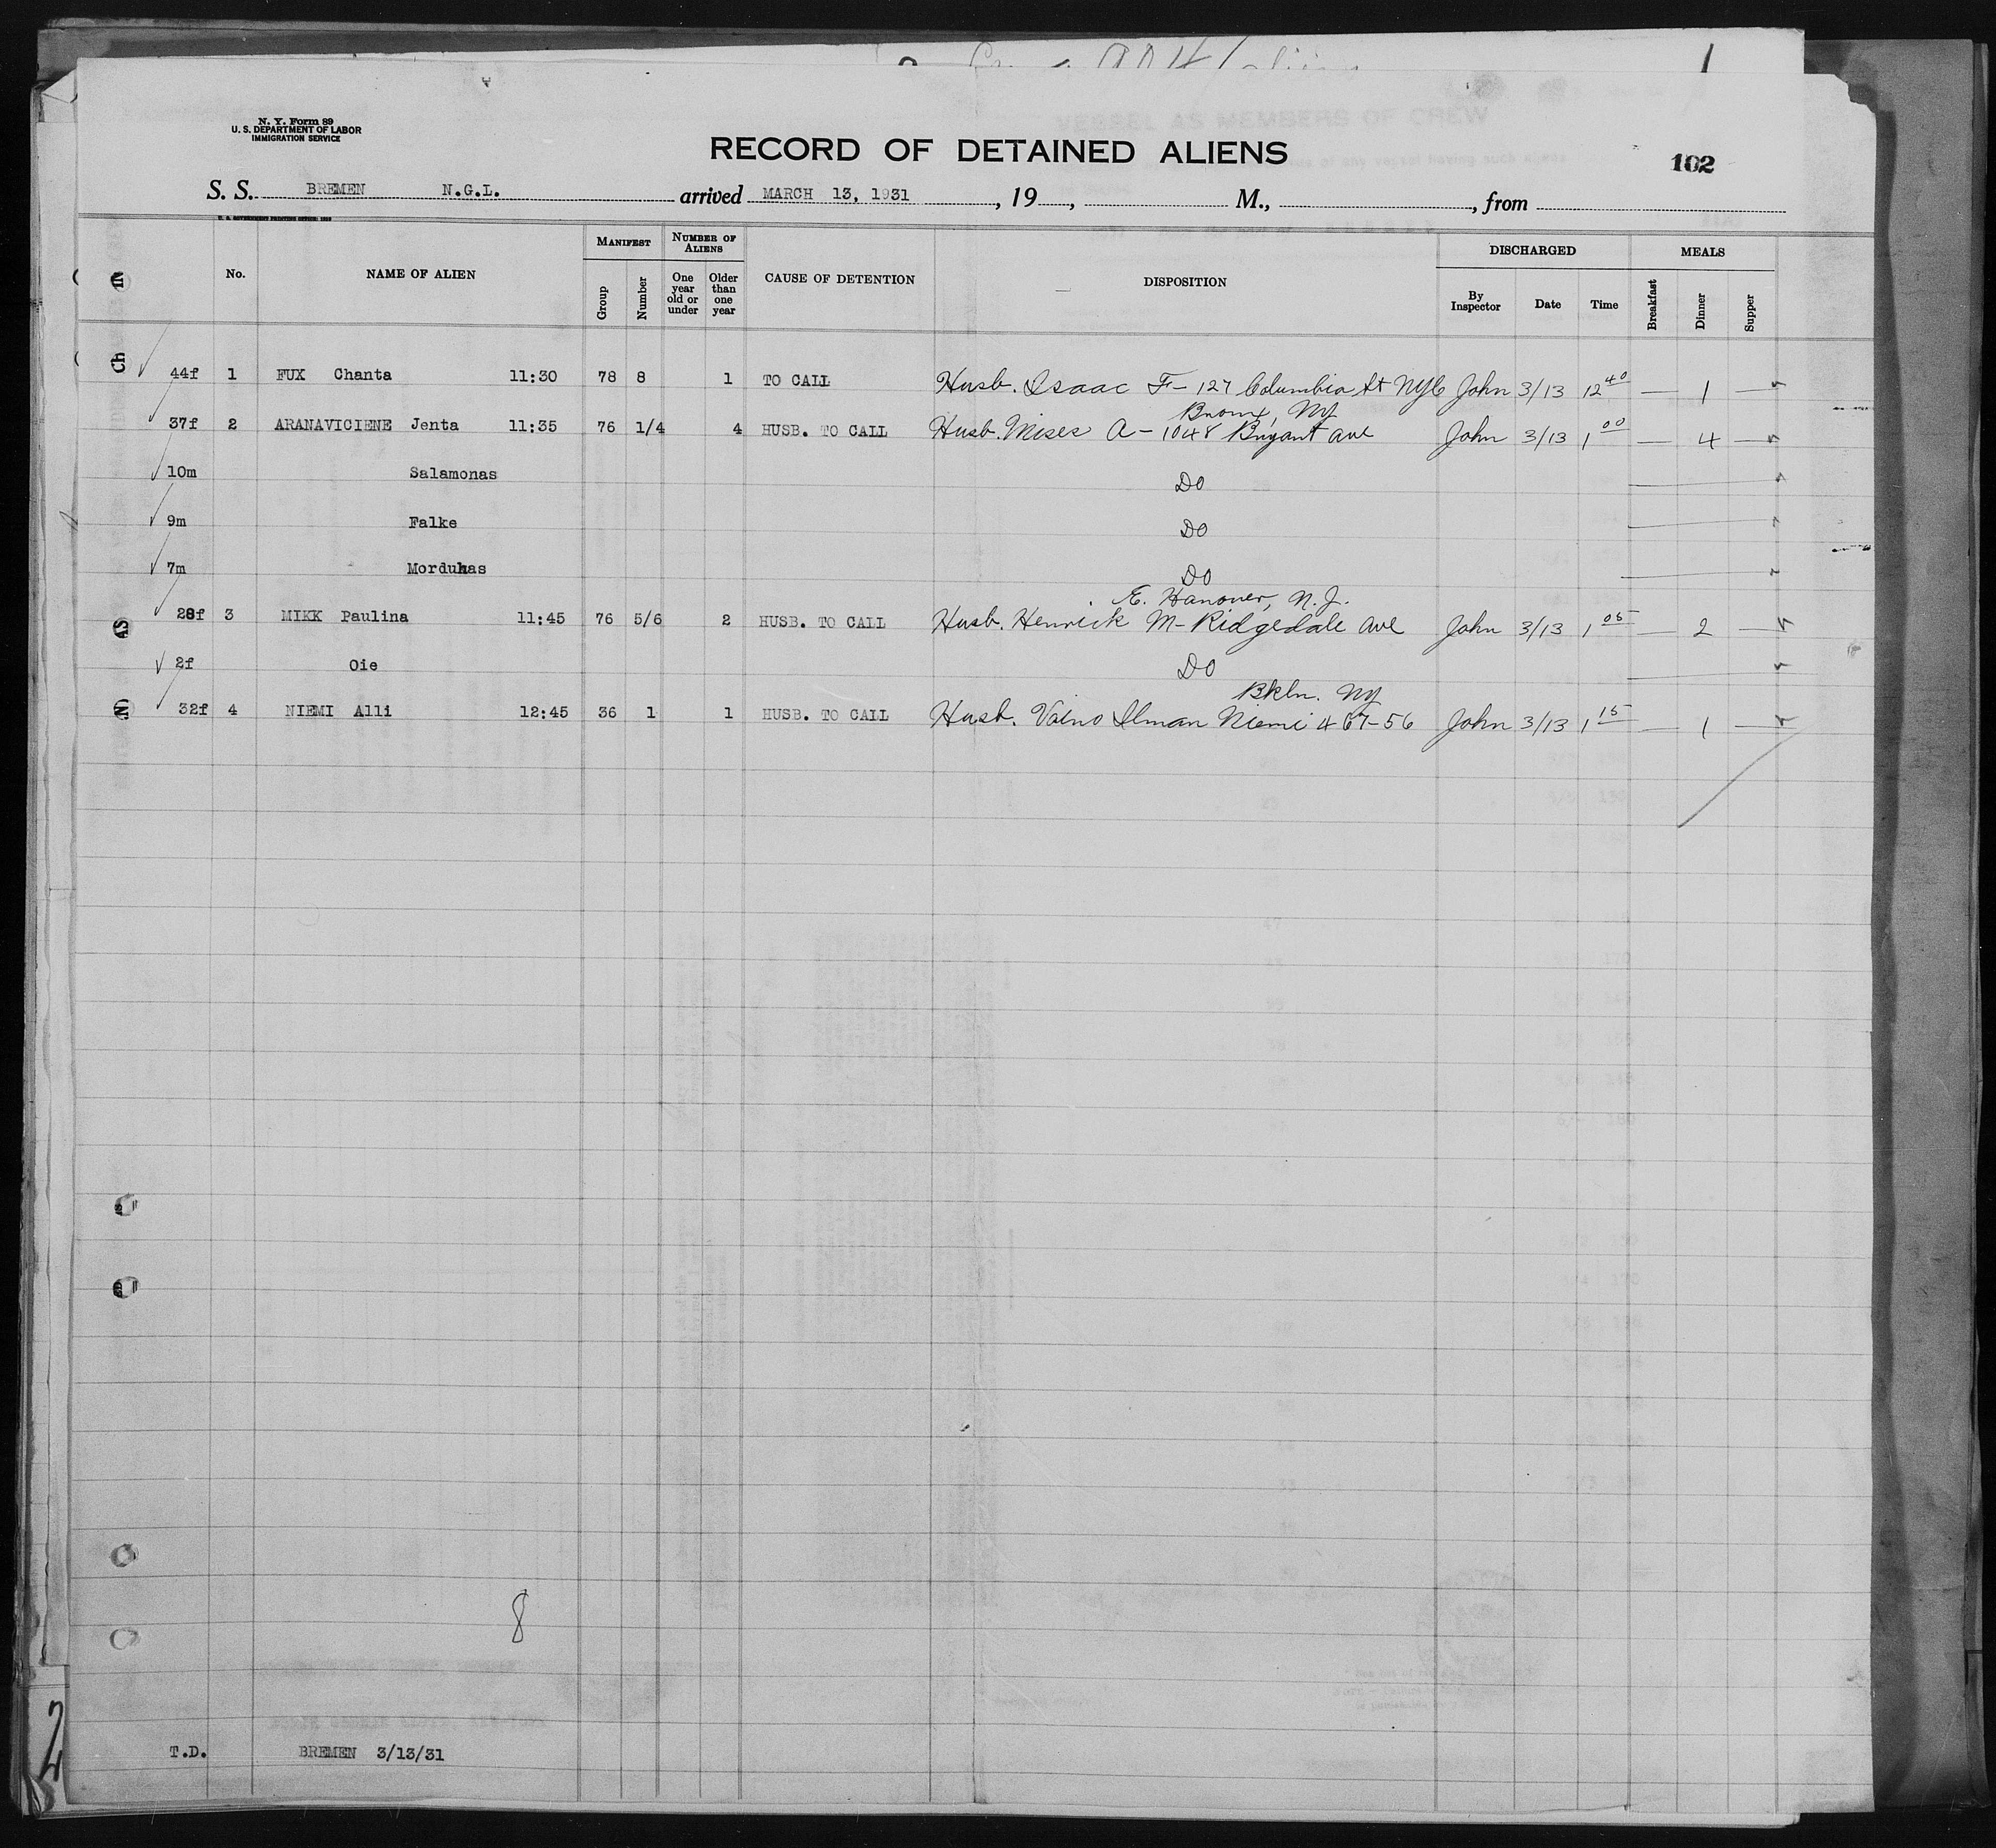 1
N. Y. Form 89
U. S. DEPARTMENT OF LABOR
IMMIGRATION SERVICE
RECORD OF DETAINED ALIENS
102
S. S. BREMEN N.G.L. arrived MARCH 13, 1931, 19 , M., , from
MANIFEST NUMBER OF ALIENS DISCHARGED MEALS
No. NAME OF ALIEN Group Number One year old or under Older than one year CAUSE OF DETENTION DISPOSITION By Inspector Date Time Breakfast Dinner Supper
44f 1 FUX Chanta 11:30 78 8 1 TO CALL Husb. Isaac F- 127 Columbia St NYC John 3/13 12 40 — 1 —
Bronx, NY
37f 2 ARANAVICIENE Jenta 11:35 76 1/4 4 HUSB. TO CALL Husb. Mises A- 1048 Bryant Ave John 3/13 1 00 — 4 —
10m Salamonas DO
9m Falke DO
7m Morduhas DO
E. Hanover, N.J.
28f 3 MIKK Paulina 11:45 76 5/6 2 HUSB. TO CALL Husb. Henrick M- Ridgedale Ave John 3/13 1 05 — 2 —
2f Oie DO
Bkln. NY
32f 4 NIEMI Alli 12:45 36 1 1 HUSB. TO CALL Husb. Vaino Ilman Niemi 467-56 John 3/13 1 15 — 1 —
8
2
T.D. BREMEN 3/13/31